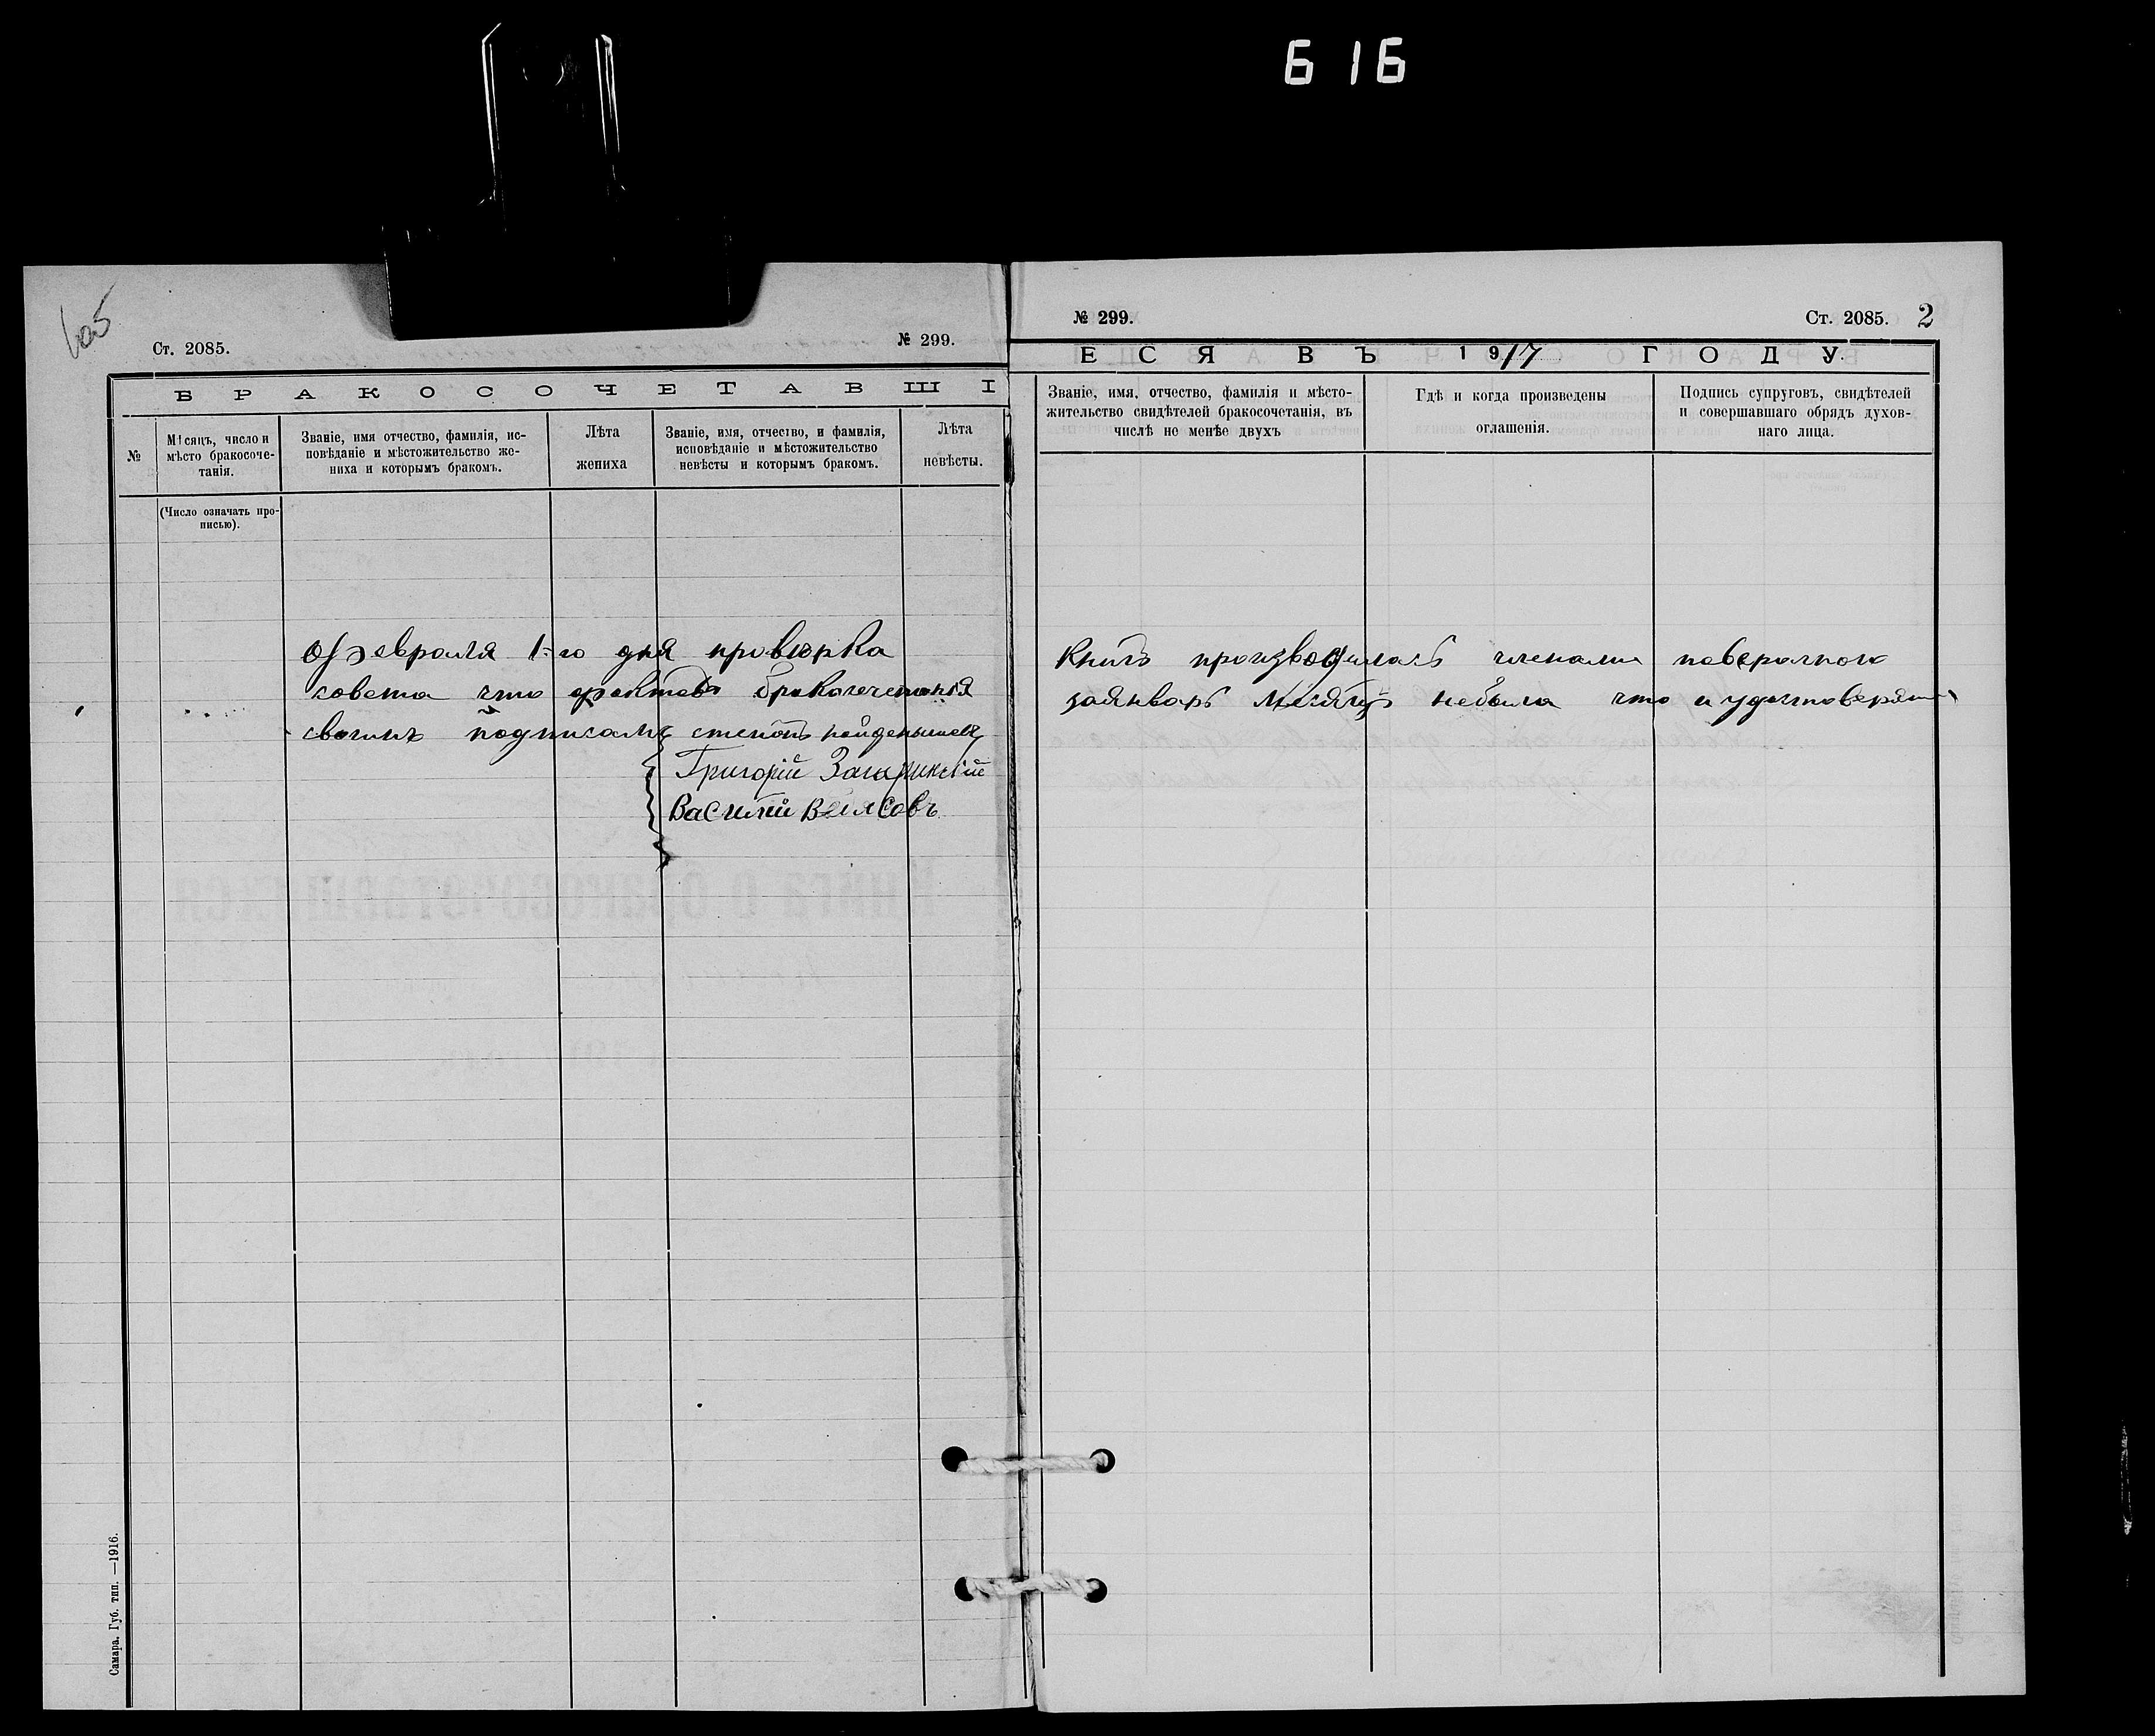 616
605
Ст. 2085.
№ 299.
БРАКОСОЧЕТАВШІ
№
Мѣсяцъ, число и
мѣсто бракосоче-
танія.
Званіе, имя отчество, фамилія, ис-
повѣданіе и мѣстожительство же-
ниха и которымъ бракомъ.
Лѣта
жениха
Званіе, имя, отчество, и фамилія,
исповѣданіе и мѣстожительство
невѣсты и которымъ бракомъ.
Лѣта
невѣсты.
(Число означать про-
писью).
февраля 1-го дня провѣрка
совета что фактовъ бракосочетанія
своимъ подписамъ степанъ
Григорій
Василій Власовъ
Самара. Губ. тип. —1916.
№ 299.
Ст. 2085. 2
ЕСЯ ВЪ 1917 ГОДУ.
Званіе, имя, отчество, фамилія и мѣсто-
жительство свидѣтелей бракосочетанія, въ
числѣ не менѣе двухъ
Гдѣ и когда произведены
оглашенія.
Подпись супруговъ, свидѣтелей
и совершавшаго обрядъ духов-
наго лица.
Книгъ производилась членами
заянварь месяцъ небыла что и